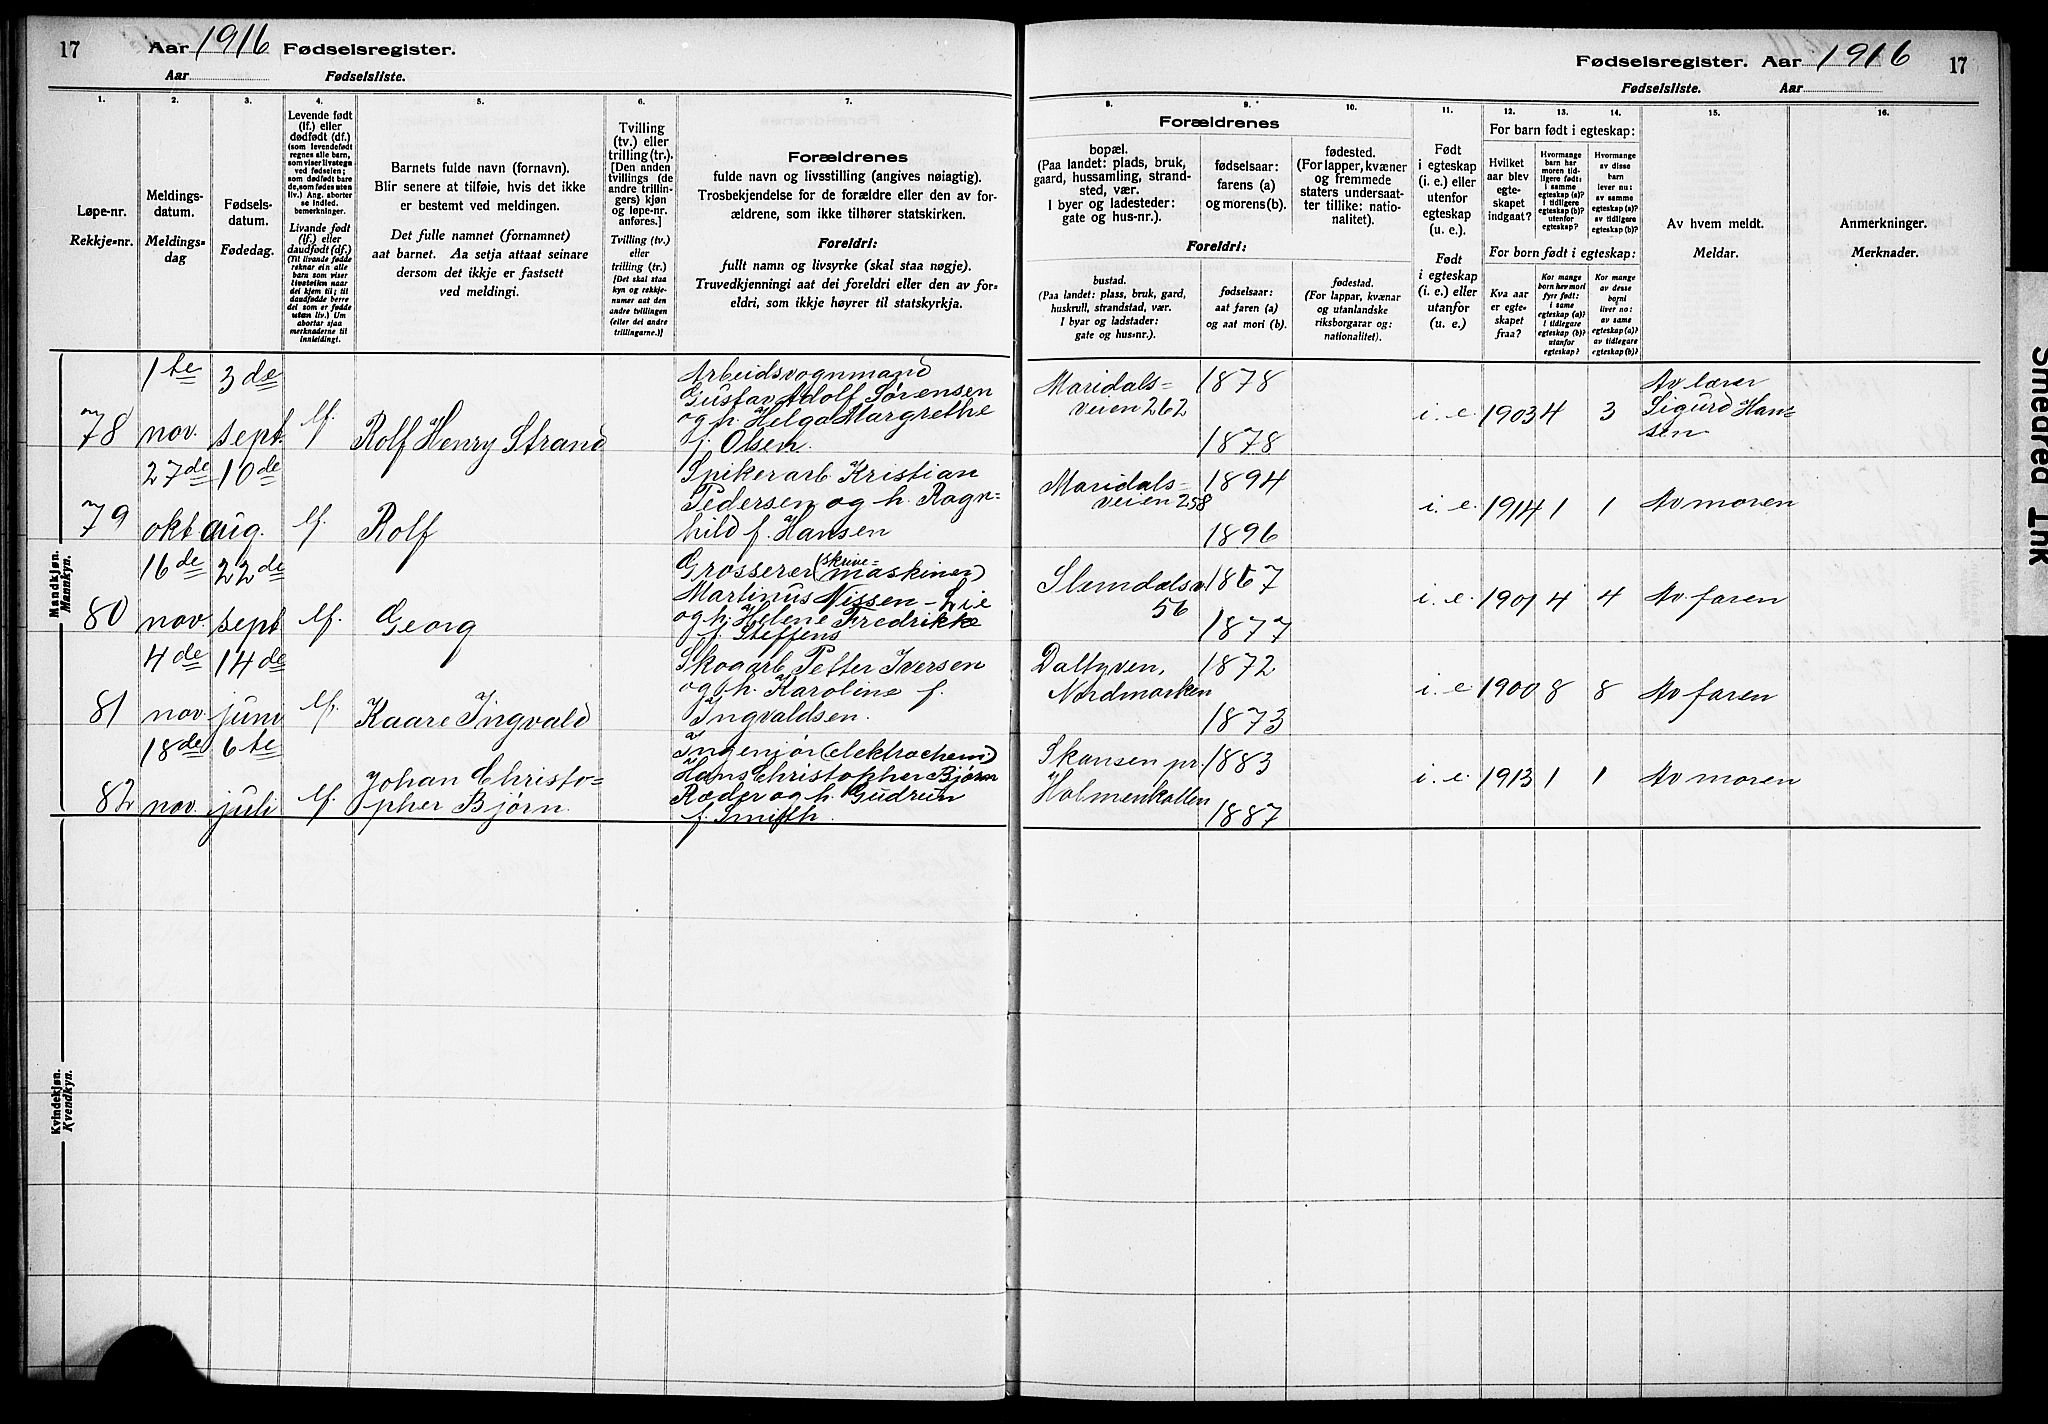 17
Aar 1916 Fødselsregister.
Aar Fødselsliste.
1.
Løpe-nr.
Rekkje-nr.
2.
Meldings-
datum.
Meldings-
dag
3.
Fødsels-
datum.
Fødedag.
4.
Levende født
(lf.) eller
dødfødt (df.)
(som levendefødt
regnes alle barn,
som viser livstegn
ved fødselen;
som dødfødt bare
de, som fødes uten
liv.) Ang. aborter
se indled.
bemerkninger.
Livande født
(lf.) eller
daudfødt (df.)
(Til livande fødde
reknar ein alle
barn som viser
livsteikn naar
dei kjem til; til
daudfødde berre
dei som er fødde
utan liv.) Um
abortar sjaa
merknaderne til
innleidingi.
5.
Barnets fulde navn (fornavn).
Blir senere at tilføie, hvis det ikke
er bestemt ved meldingen.
Det fulle namnet (fornamnet)
aat barnet. Aa setja attaat seinare
dersom det ikkje er fastsett
ved meldingi.
6.
Tvilling
(tv.) eller
trilling (tr.).
[Den anden
tvillings (de
andre trillin-
gers) kjøn
og løpe-nr.
anføres.]
Tvilling (tv.)
eller
trilling (tr.)
[Det skal staa
kyn og rekkje-
numer aat den
andre tvillingen
(eller dei andre
trillingarne.)]
7.
Forældrenes
fulde navn og livsstilling (angives nøiagtig).
Trosbekjendelse for de forældre eller den av for-
ældrene, som ikke tilhører statskirken.
Foreldri:
fullt namn og livsyrke (skal staa nøgje).
Truvedkjenningi aat dei foreldri eller den av for-
eldri, som ikkje høyrer til statskyrkja.
Mandkjøn.
Mannkyn.
78
1te
nov.
3de
sept.
lf.
Rolf Henry Strand
Arbeidsvognmand
Gustav Adolf Sørensen
og h. Helga Margrethe
f. Olsen.
79
27de
okt
10de
aug.
lf.
Rolf
Spikerarb. Kristian
Pedersen og h. Ragn-
hild f. Hansen
80
16de
nov.
22de
sept
lf.
Georg
Grosserer (skrive-
maskiner)
Martinus Nissen-Lie
og h. Helene Fredrikke
f. Steffens
81
4de
nov
14de
juni
lf.
Kaare Ingvald
Skogarb. Petter Iversen
og h. Karoline f.
Ingvaldsen.
82
18de
nov.
6te
juli
lf.
Johan Christo-
pher Bjørn
Ingeniør (elektrochem.)
Hans Christopher Bjørn
Ræder og h. Gudrun
f. Smith.
Kvindekjøn.
Kvendkyn.
Fødselsregister. Aar 1916
Fødselsliste. Aar
17
Forældrenes
8.
bopæl.
(Paa landet: plads, bruk,
gaard, hussamling, strand-
sted, vær.
I byer og ladesteder:
gate og hus-nr.).
Foreldri:
bustad.
(Paa landet: plass, bruk, gard,
huskrull, strandstad, vær.
I byar og ladstader:
gate og hus-nr.).
9.
fødselsaar:
farens (a)
og morens (b).
fødselsaar:
aat faren (a)
og aat mori (b).
10.
fødested.
(For lapper, kvæner
og fremmede
staters undersaat-
ter tillike: natio-
nalitet).
fødestad.
(For lappar, kvænar
og utanlandske
riksborgarar og:
nationalitet).
11.
Født
i egteskap
(i. e.) eller
utenfor
egteskap
(u. e.).
Født
i egteskap
(i. e.) eller
utanfor
(u. e.)
12. 13. 14.
For barn født i egteskap:
Hvilket
aar blev
egte-
skapet
indgaat?
Hvormange
barn har
moren tid-
ligere født:
i samme
egteskap (a)?
i tidligere
egteskap (b)?
utenfor
egteskap?
Hvormange
av disse
barn
lever nu:
av samme
egteskap (a)?
av tidligere
egteskap (b)?
For born født i egteskap:
Kva aar
er egte-
skapet
fraa?
Kor mange
born hev mori
fyrr født:
i same
egteskap (a)?
i tidlegare
egteskap (b)?
utanfor
egteskap?
Kor mange
av desse
borni
liver no:
av same
egteskap (a)?
av tidlegare
egteskap (b)?
15.
Av hvem meldt.
Meldar.
16.
Anmerkninger.
Merknader.
Maridals-
veien 262
1878
1878
i. e. 1903 4 3
Av lærer
Sigurd Han-
sen
Maridals-
veien 258
1894
1896
i. e. 1914 1 1 Av moren
Slemdalsv
56
1867
1877
i. e. 1901 4 4 Av faren
Daltyven,
Nordmarken
1872
1873
i. e 1900 8 8 Av faren
Skansen pr.
Holmenkollen
1883
1887
i. e. 1913 1 1 Av moren
Smedred Ink